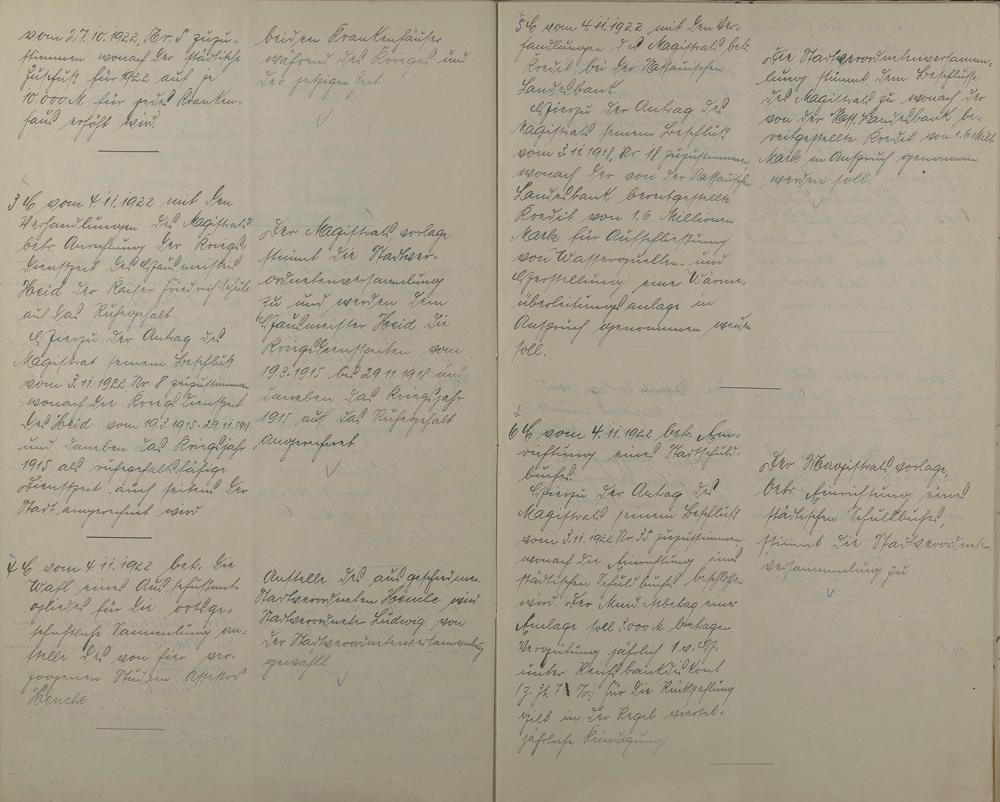 vom 27.10.1922, Nr. 5 zuzu-
stimmen wonach der städtische
Zuschuß für 1922 auf je
10.000 M für jedes Kranken-
haus erhöht wird.
beiden Krankenhäuser
während des Krieges und
der jetzigen Zeit
3 C vom 4.11.1922 mit den
Verhandlungen des Magistrats
betr. Anrechnung der Kriegs
dienstzeit des Hausmeisters
Heid der Kaiser Friedrich Schule
auf das Ruhegehalt.
Hierzu der Antrag des
Magistrat seinem Beschluß
vom 3.11.1922 Nr 8 zuzustimmen
wonach die Kriegsdienstzeit
des Heid vom 19.3.1915 - 29.11.1918
und daneben das Kriegsjahr
1915 als ruhegehaltsfähige
Dienstzeit auch seitens der
Stadt angerechnet wird
Der Magistratsvorlage
stimmt die Stadtver-
ordnetenversammlung
zu und werden dem
Hausmeister Heid die
Kriegsdienstzeiten vom
19.3.1915 bis 29.11.1918 und
daneben das Kriegsjahr
1915 auf das Ruhegehalt
angerechnet
4 C vom 4.11.1922 betr. die
Wahl eines Ausschußmit-
gliedes für die ortsge-
schichtliche Sammlung an-
stelle des von hier ver-
zogenen Studien-Assessors
Henche
Anstelle des ausgeschiedenen
Stadtverordneten Henche wird
Stadtverordneter Ludwig von
der Stadtverordnetenversammlung
gewählt
5 C vom 4.11.1922 mit den Ver-
handlungen des Magistrats betr.
Kredit bei der Nassauischen
Landesbank
Hierzu der Antrag des
Magistrats seinem Beschluß
vom 3.11.1918, Nr 18 zuzustimmen,
wonach der von der Nassauischen
Landesbank bereitgestellte
Kredit von 1.6 Millionen
Mark für Aufschließung
von Wasserquellen und
Herstellung einer Wärme-
überleitungsanlage in
Anspruch genommen werden
soll.
Die Stadtverordnetenversamm-
lung stimmt dem Beschlusse
des Magistrats zu wonach der
von der Nass. Landesbank be-
reitgestellte Kredit von 1.6 Mill.
Mark in Anspruch genommen
werden soll.
6 C vom 4.11.1922 betr. Ein-
richtung eines Stadtschuld-
buches
Hierzu der Antrag des
Magistrats seinem Beschluß
vom 3.11.1922 Nr. 35 zuzustimmen
wonach die Einrichtung eines
städtischen Schuldbuchs beschlossen
wird. Der Mindestbetrag einer
Einlage soll 3000 M betragen.
Vergütung jährlich 1 v. H.
unter Reichsbankdiskont
(z. Zt 7 %) für die Rückzahlung
gilt in der Regel viertel-
jährliche Kündigung
Der Magistratsvorlage,
betr. Einrichtung eines
städtischen Schuldbuches,
stimmt die Stadtverordneten-
versammlung zu